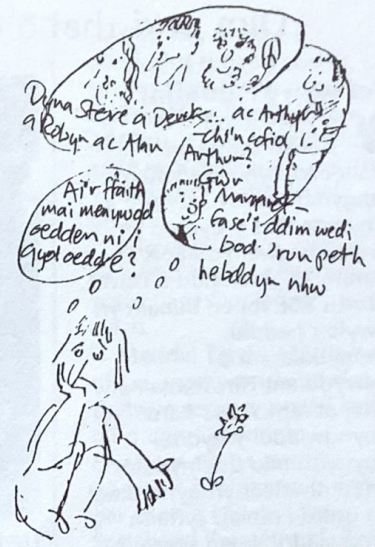 Dyna Steve a Derek... ac Arthur
a Robyn ac Alun
- chi'n cofio
Arthur?
Gŵr
Margaret
fase'i ddim wedi
bod 'run peth
hebddyn nhw
Ai'r ffaith
mai menywod
oedden ni i
gyd oedd e?